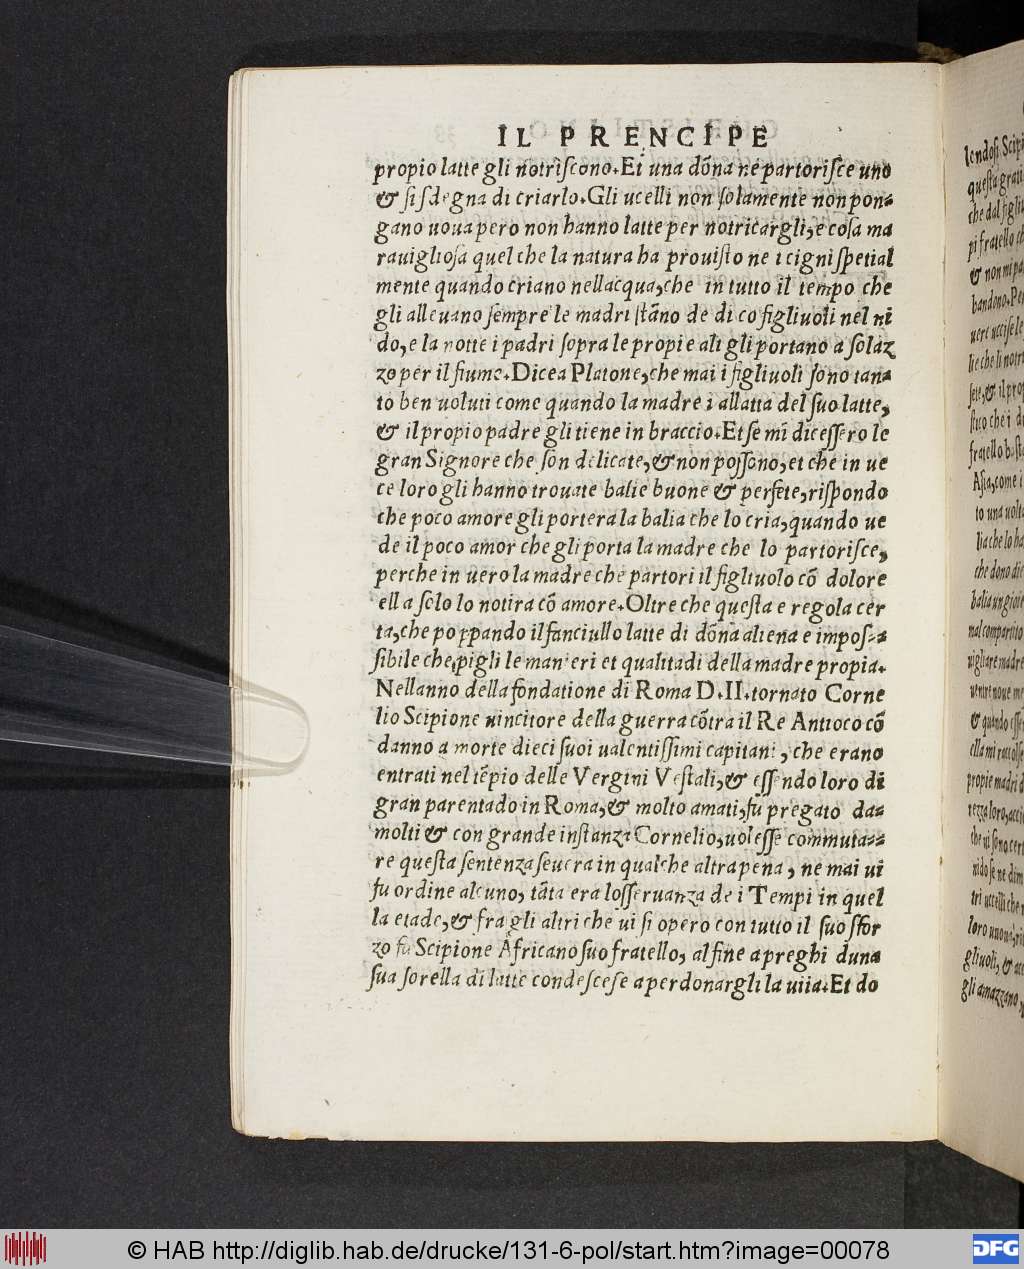 IL PRENCIPE
propio latte gli notriscono. Et una dõna ne partorisce uno
& si sdegna di criarlo. Gli ucelli non solamente non pon-
gano uoua pero non hanno latte per notricargli, e cosa ma
rauigliosa quel che la natura ha prouisto ne i cigni spetial
mente quando criano nellacqua, che in tutto il tempo che
gli alleuano sempre le madri stãno de di co figliuoli nel ni
do, e la notte i padri sopra le propie ali gli portano a solaz
zo per il fiume. Dicea Platone, che mai i figliuoli sono tan-
to ben uoluti come quando la madre i allatta del suo latte,
& il propio padre gli tiene in braccio. Et se mi dicessero le
gran Signore che son delicate, & non possono, et che in ue
ce loro gli hanno trouate balie buone & perfete, rispondo
che poco amore gli portera la balia che lo cria, quando ue
de il poco amor che gli porta la madre che lo partorisce,
perche in uero la madre che partori il figliuolo cõ dolore
ella solo lo notira cõ amore. Oltre che questa e regola cer
ta, che poppando il fanciullo latte di dõna aliena e impos-
sibile che pigli le manieri et qualitadi della madre propia.
Nellanno della fondatione di Roma D. II. tornato Corne
lio Scipione uincitore della guerra cõtra il Re Antioco cõ
danno a morte dieci suoi ualentissimi capitani, che erano
entrati nel tẽpio delle Vergini Vestali, & essendo loro di
gran parentado in Roma, & molto amati, fu pregato da-
molti & con grande instanza Cornelio, uolesse commuta-
re questa sentenza seuera in qualche altra pena, ne mai ui
fu ordine alcuno, tãta era losseruanza de i Tempi in quel
la etade, & fra gli altri che ui si opero con tutto il suo sfor
zo fu Scipione Africano suo fratello, al fine a preghi duna
sua sorella di latte condescese a perdonargli la uita. Et do
lendosi Scipi
questa grati
che dal figliu
pi fratello ch
& non mi pa
bandono. Per
uere uccise le
lie che li notri
sete, & il prop
fratello basta
Asia, come i
to una uolta
lia che lo ha
che dono die
balia un gioie
mal compartito
uigliare madre
uentre noue me
& quando esse
ella mi raccolse
propie madri d
tezza loro, acci
che ui sono cert
nido se ne dim
tri uccelli che n
loro
gliuoli, & ac
gli amazzano
© HAB http://diglib.hab.de/drucke/131-6-pol/start.htm?image=00078
DFG